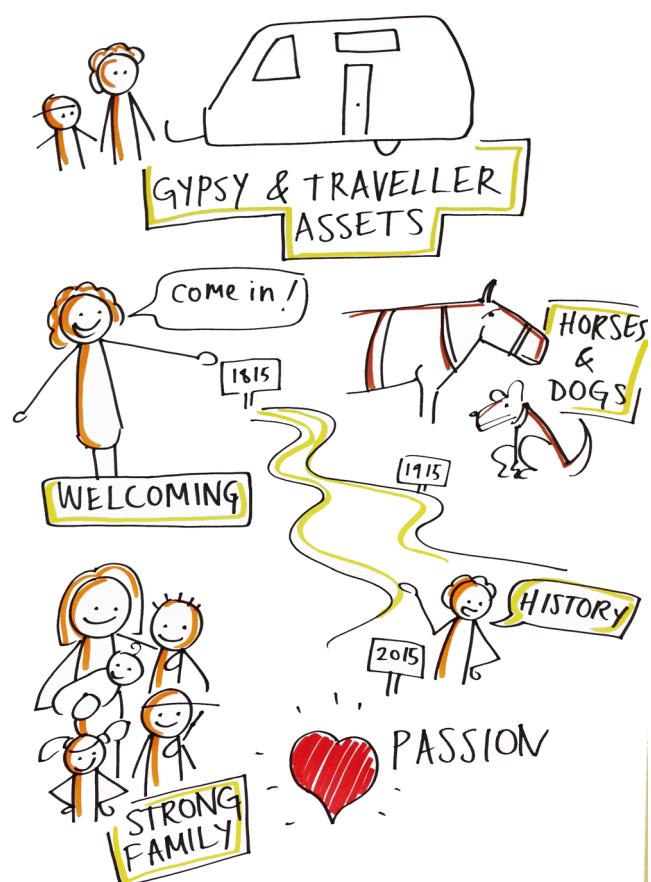 GYPSY & TRAVELLER
ASSETS
come in!
1815
HORSES
&
DOGS
1915
WELCOMING
HISTORY
2015
PASSION
STRONG
FAMILY